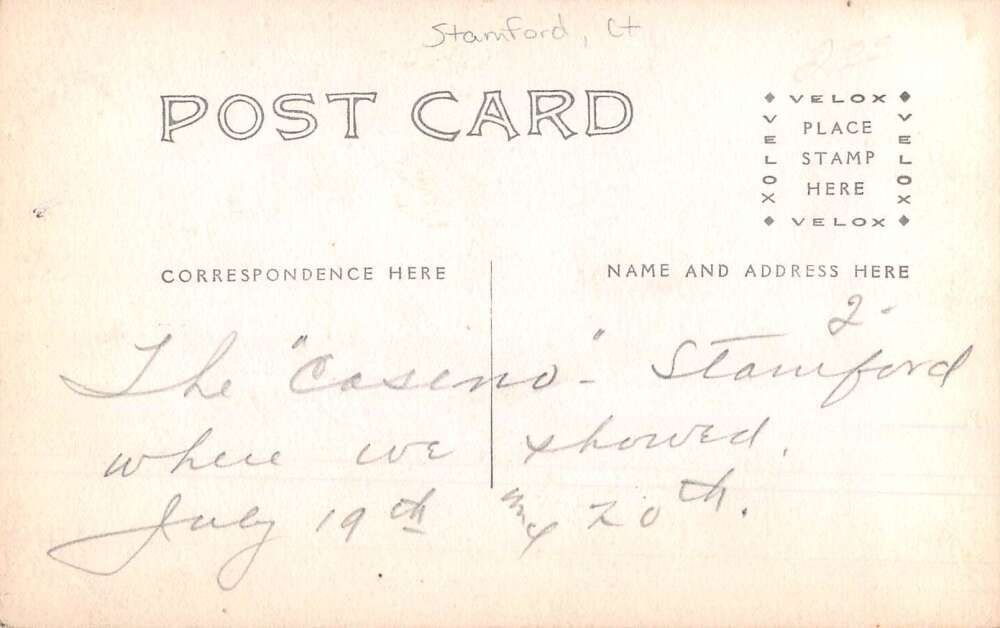 Stamford, Ct
POST CARD
VELOX
VELOX
PLACE
STAMP
HERE
VELOX
VELOX
CORRESPONDENCE HERE
NAME AND ADDRESS HERE
2-
The "Casino" - Stamford
where we showed.
July 19th 20th.